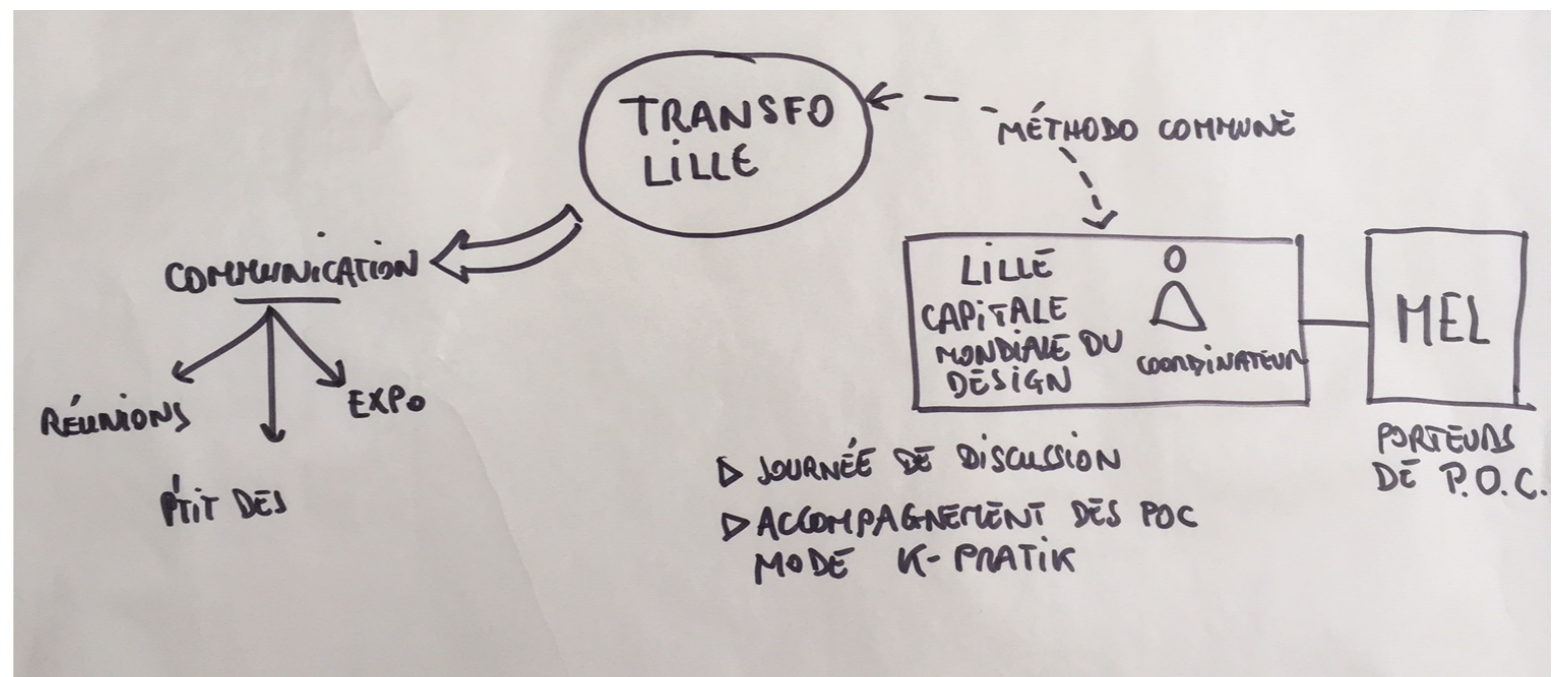 TRANSFO
LILLE
MÉTHODO COMMUNE
COMMUNICATION
RÉUNIONS
P'TIT DES
EXPO
LILLE
CAPITALE
MONDIALE DU
DESIGN
COORDINATEUR
MEL
PORTEURS
DE P.O.C.
JOURNÉE DE DISCUSSION
ACCOMPAGNEMENT DES POC
MODE K-PRATIK